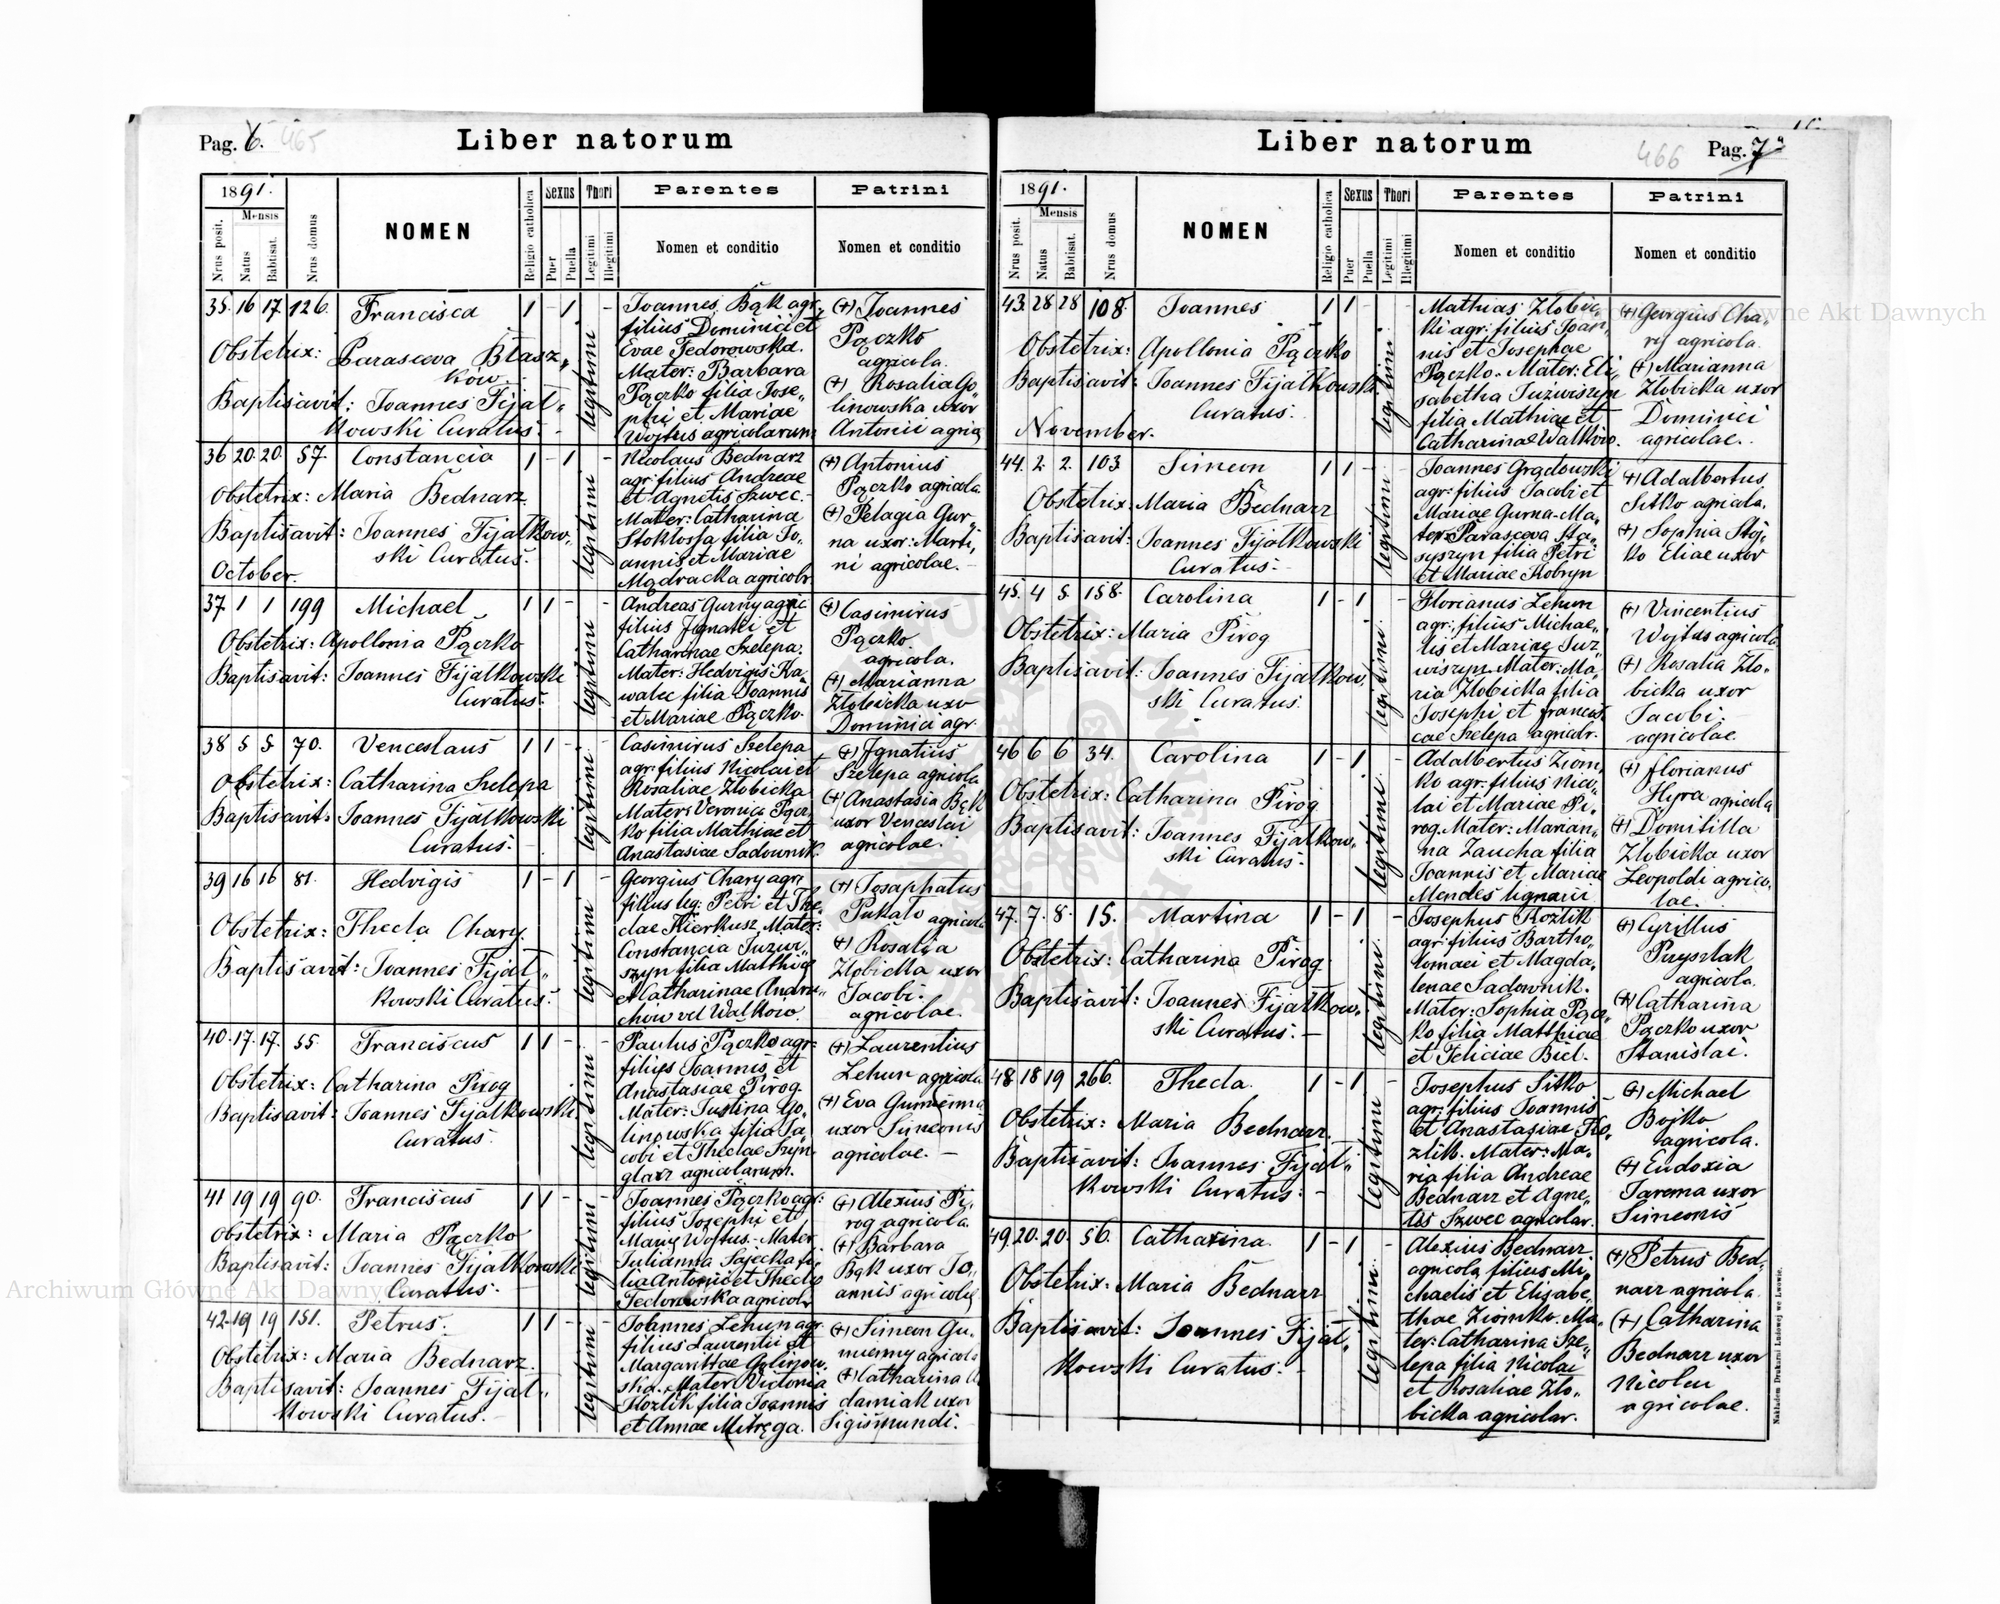 Pag. 6. 465
Liber natorum
1891.
Mensis
Nrus posit.
Natus
Babtisat.
Nrus domus
NOMEN
Religio catholica
Sexus
Puer
Puella
Thori
Legitimi
Illegitimi
Parentes
Nomen et conditio
Patrini
Nomen et conditio
35. 16 17. 126. Francisca 1 - 1 -
Obstetrix: Parasceva Błasz„
ków.
Baptisavit: Joannes Fijał„
kowski Curatus.
legitimi
Joannes Bąk agr.
filius Dominici et
Evae Fedorowska.
Mater: Barbara
Pączko filia Jose„
phi et Mariae
Wojtus agricolarum
(+) Joannes
Pączko
agricola.
(+) Rosalia Go„
linowska uxor
Antonii agric
36 20. 20. 57. Constancia 1 - 1 -
Obstetrix: Maria Bednarz
Baptisavit: Joannes Fijałkow„
ski Curatus.
October.
legitimi
Nicolaus Bednarz
agr: filius Andreae
et Agnetis Szwec.-
Mater: Catharina
Stokłossa filia Jo„
annis et Mariae
Mądracka agricolr.
(+) Antonius
Pączko agricola
(+) Pelagia Gur„
na uxor: Marti„
ni agricolae.-
37. 1 1 199 Michael 1 1 - -
Obstetrix: Apollonia Pączko
Baptisavit: Joannes Fijałkowski
Curatus.
legitimi
Andreas Gurny agric
filius Jgnatii et
Catharinae Szelepa.
Mater: Hedvigis Ka„
walec filia Joannis
et Mariae Pączko.
(+) Casimirus
Pączko
agricola.
(+) Marianna
Złobicka uxo
Dominici agr.
38 5 5. 70. Venceslaus 1 1 - -
Obstetrix: Catharina Szelepa
Baptisavit: Joannes Fijałkowski
Curatus.
legitimi
Casimirus Szelepa
agr: filius Nicolai et
Rosaliae Złobicka
Mater: Veronica Pącz„
ko filia Mathiae et
Anastasiae Sadownik.
(+) Jgnatius
Szelepa agricola
(+) Anastasia Bąk
uxor Venceslai
agricolae.
39 16 16 81. Hedvigis 1 - 1 -
Obstetrix: Thecla Chary.
Baptisavit: Joannes Fijał„
kowski Curatus.
legitimi
Georgius Chary agr.
filius leg: Petri et The„
clae Kierkusz Mater:
Constancia Juzwi„
szyn filia Matthiae
et Catharinae Andru„
chow vel Wałkow.
(+) Josaphatus
Pukało agricola
(+) Rosalia
Złobicka uxor
Jacobi.
agricolae.
40. 17. 17. 55. Franciscus 1 1 - -
Obstetrix: Catharina Pirog
Baptisavit: Joannes Fijałkowski
Curatus.
legitimi
Paulus Pączko agr:
filius Joannis et
Anastasiae Pirog.
Mater: Justina Go„
linowska filia Ja„
cobi et Theclae Szyn„
glarz agricolarum.
(+) Laurentius
Lehun agricola
(+) Eva Gumienna
uxor Simeonis
agricolae. -
41 19 19 90. Franciscus 1 1 - -
Obstetrix: Maria Pączko
Baptisavit: Joannes Fijałkowski
Curatus. -
legitimi
Joannes Pączko agr:
filius Josephi et
Mariae Wojtus.- Mater
Julianna Sajecka fi„
lia Antonii et Theclae
Fedorowska agricolr
(+) Alexius Pi„
rog agricola
(+) Barbara
Bąk uxor Jo„
annis agricolae
42. 19 19 151. Petrus. 1 1 - -
Obstetrix: Maria Bednarz.
Baptisavit: Joannes Fijał„
kowski Curatus.-
legitimi
Joannes Lehun agr.
filius Laurentii et
Margarittae Golinow„
ska. Mater Victoria
Kozlik filia Joannis
et Annae Mitręga.
(+) Simeon Gu„
mienny agricola
(+) Catharina A
damiak uxor
Sigismundi.-
Liber natorum
466 Pag. 7
1891.
Mensis
Nrus posit.
Natus
Babtisat.
Nrus domus
NOMEN
Religio catholica
Sexus
Puer
Puella
Thori
Legitimi
Illegitimi
Parentes
Nomen et conditio
Patrini
Nomen et conditio
43. 28 28 108. Joannes 1 1 - -
Obstetrix: Apollonia Pączko
Baptisavit: Joannes Fijałkowski
Curatus.
November.
legitimi
Mathias Złobic„
ki agr: filius Joan„
nis et Josephae
Pączko. Mater: Eli„
sabetha Juzwiszyn
filia Mathiae et
Catharinae Wałkow.
(+) Georgius Cha„
ry agricola.
(+) Marianna
Złobicka uxor
Dominici
agricolae.
44. 2. 2. 103. Simeon 1 1 -
Obstetrix: Maria Bednarz
Baptisavit: Joannes Fijałkowski
Curatus.-
legitimi
Joannes Grądowski
agr: filius Jacobi et
Mariae Gurna.- Ma„
ter: Parasceva Sta„
syszyn filia Petri
et Mariae Kobryn
(+) Adalbertus
Sitko agricola.
(+) Sophia Stoj„
ko Eliae uxor
45. 4 5. 158. Carolina 1 - 1 -
Obstetrix: Maria Pirog
Baptisavit: Joannes Fijałkow„
ski Curatus.
legitimi
Florianus Lehun
agr: filius Michae„
lis et Mariae Juz„
wiszyn. Mater: Ma„
ria Złobicka filia
Josephi et Francis
cae Szelepa agricolr.
(+) Vincentius
Wojtus agricola
(+) Rosalia Zło„
bicka uxor
Jacobi.
agricolae.
46 6 6 34. Carolina 1 - 1 -
Obstetrix: Catharina Pirog
Baptisavit: Joannes Fijałkow„
ski Curatus.-
legitimi
Adalbertus Ziom„
ko agr: filius Nico„
lai et Mariae Pi„
rog. Mater: Marian„
na Zaucha filia
Joannis et Mariae
Mendes lignarii
(+) Florianus
Hyra agricola
(+) Domitilla
Złobicka uxor
Leopoldi agrico„
lae.
47. 7. 8. 15. Martina 1 - 1 -
Obstetrix: Catharina Pirog
Baptisavit: Joannes Fijałkow„
ski Curatus.-
legitimi
Josephus Kozlik
agr: filius Bartho„
lomaei et Magda„
lenae Sadownik.
Mater: Sophia Pącz„
ko filia Matthiae
et Feliciae Biel.
(+) Cyrillus
Puyszlak
agricola.
(+) Catharina
Pączko uxor
Stanislai.
48. 18 19 266. Thecla. 1 - 1 -
Obstetrix: Maria Bednarz.
Baptisavit: Joannes Fijał„
kowski Curatus.-
legitimi
Josephus Sitko
agr: filius Joannis
et Anastasiae Ko„
zlik. Mater: Ma„
ria filia Andreae
Bednarz et Agne„
tis Szwec agricolar.
(+) Michael
Bojko
agricola.
(+) Eudoxia
Jarema uxor
Simeonis
49. 20. 20. 56. Catharina. 1 - 1 -
Obstetrix: Maria Bednarz
Baptisavit: Joannes Fijał„
kowski Curatus.-
legitimi
Alexius Bednarz
agricola filius Mi„
chaelis et Elisabe„
thae Ziomko. Ma„
ter: Catharina Sze„
lepa filia Nicolai
et Rosaliae Zło„
bicka agricolar.
(+) Petrus Bed„
narz agricola.
(+) Catharina
Bednarz uxor
Nicolai
agricolae.
Nakładem Drukarni Ludowej we Lwowie.
Archiwum Główne Akt Dawnych
Główne Akt Dawnych